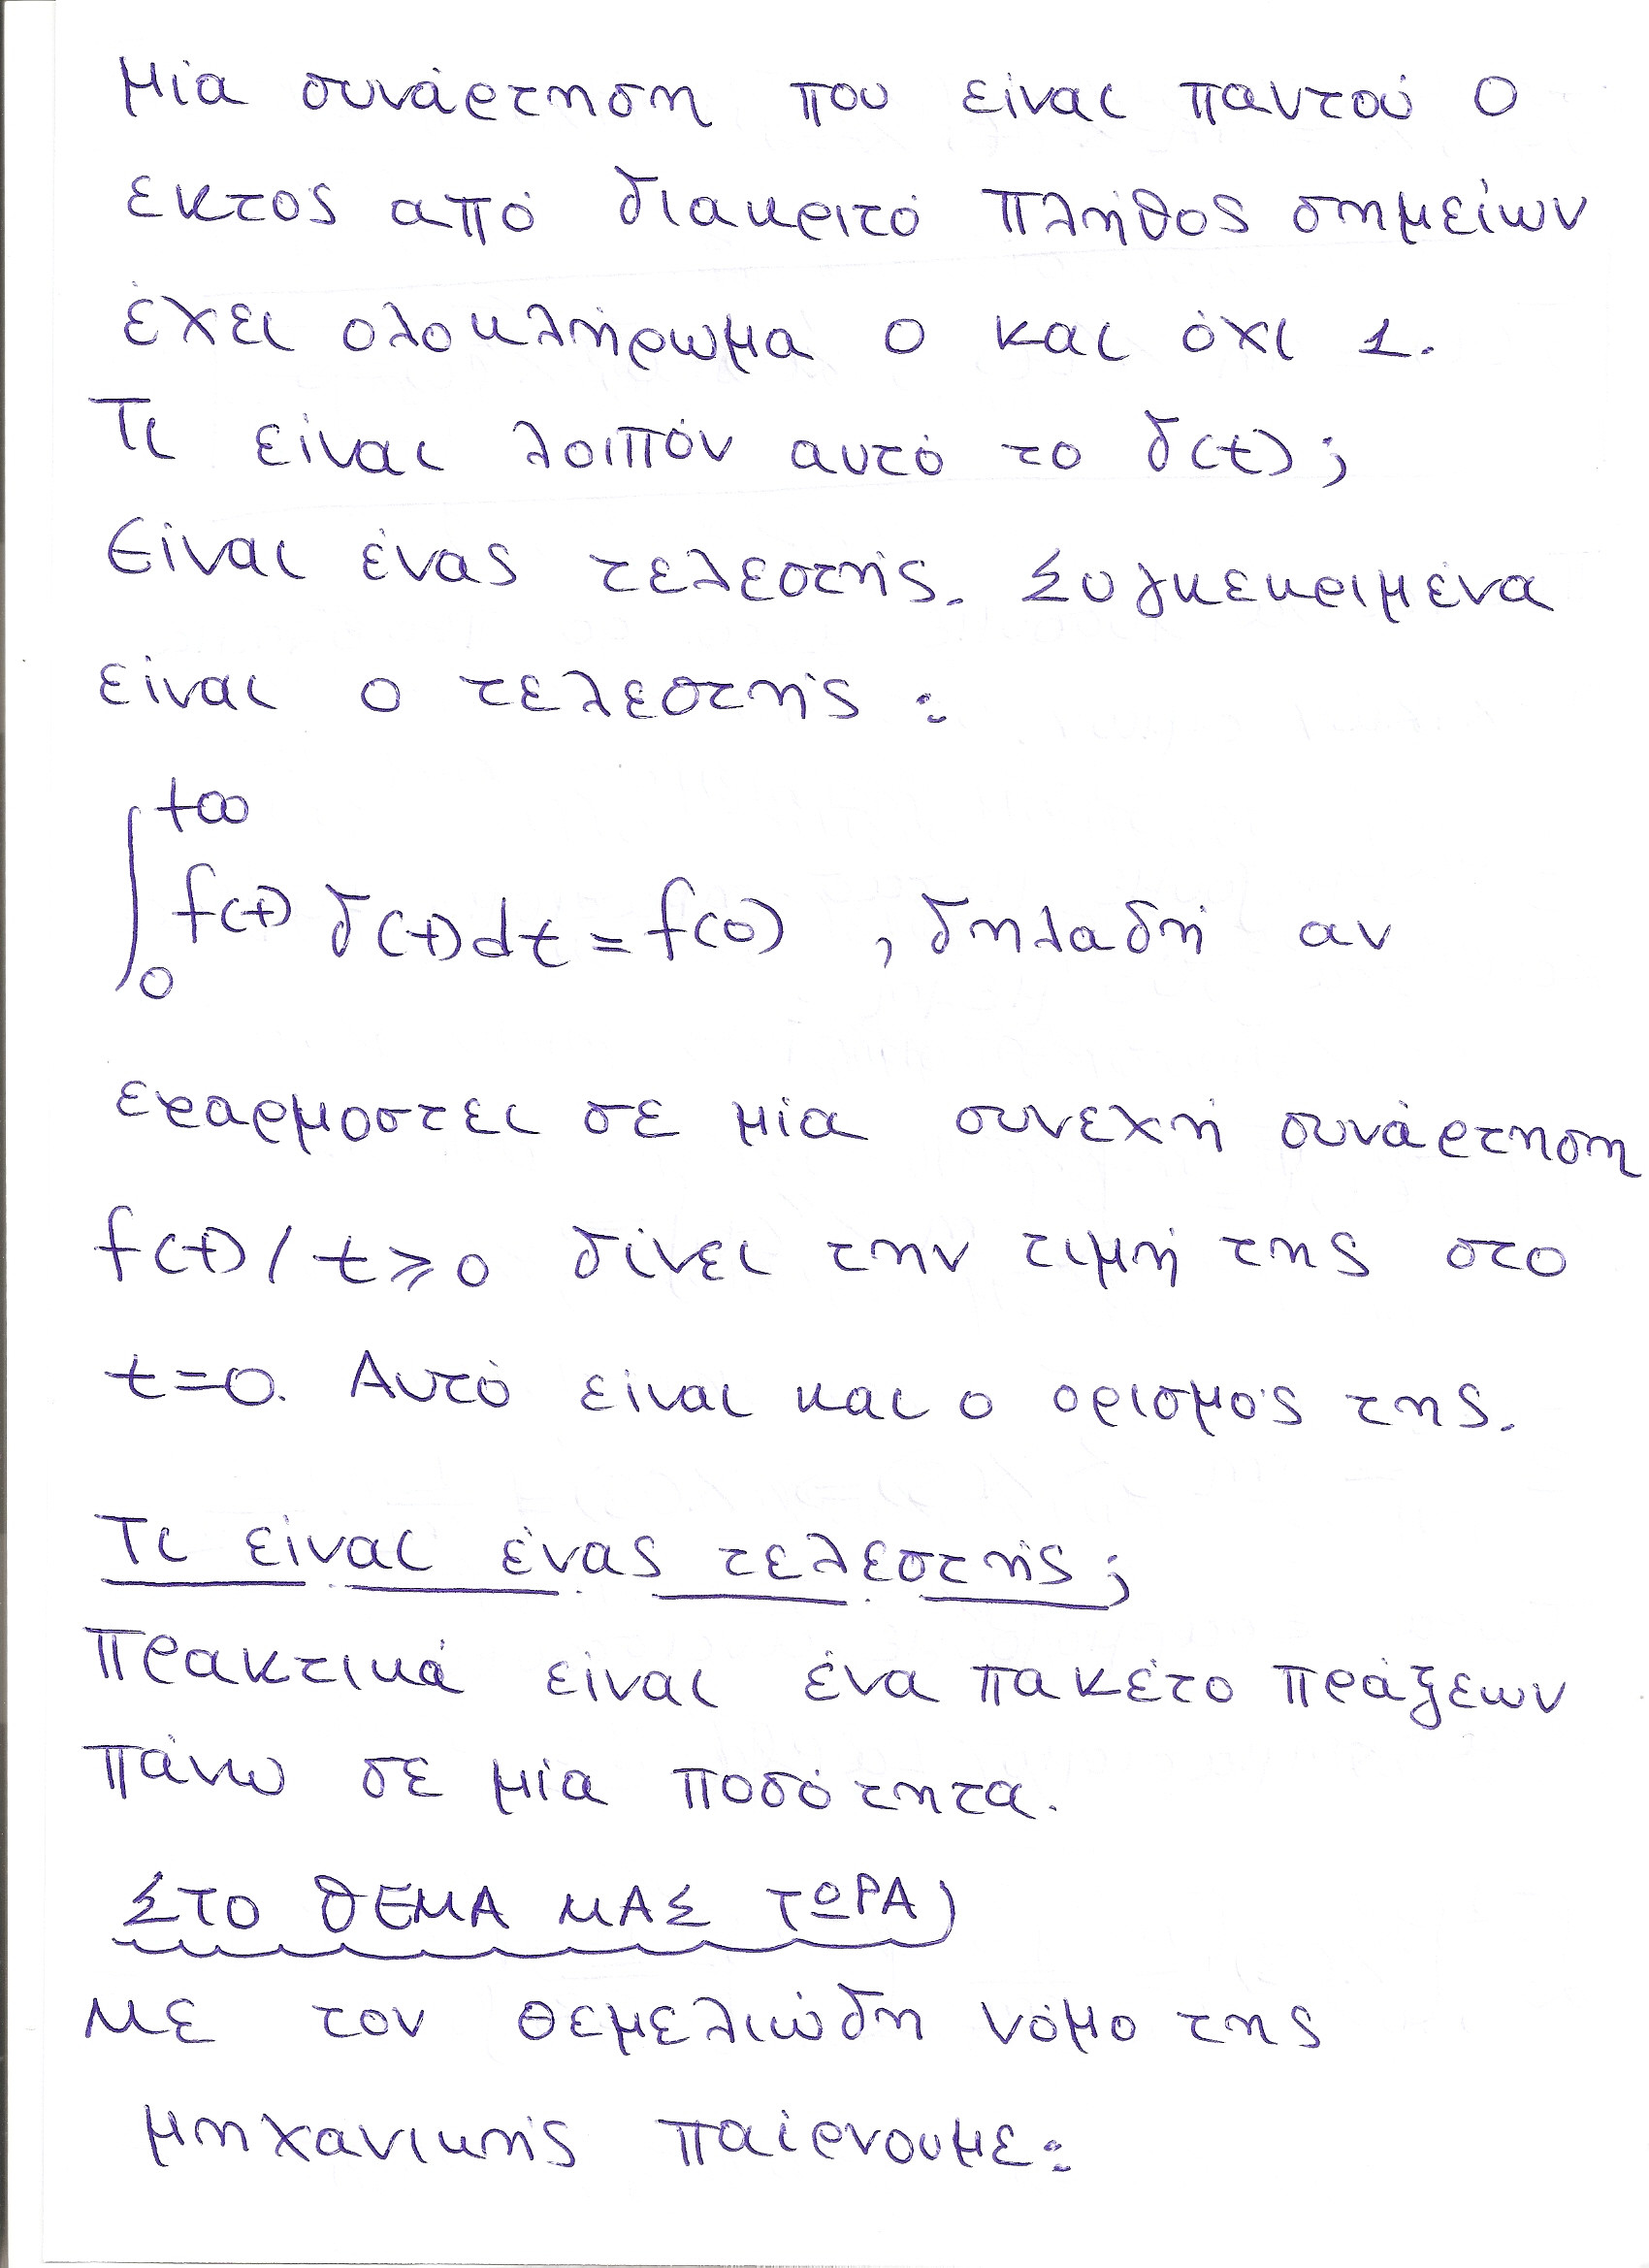 Μία συνάρτηση που είναι παντού 0
εκτός από διακριτό πλήθος σημείων
έχει ολοκλήρωμα 0 και όχι 1.
Τι είναι λοιπόν αυτό το δ(t);
Είναι ένας τελεστής. Συγκεκριμένα
είναι ο τελεστής:
∫₀^{+∞} f(t) δ(t)dt = f(0) , δηλαδή αν
εφαρμοστεί σε μία συνεχή συνάρτηση
f(t) / t ≥ 0 δίνει την τιμή της στο
t=0. Αυτό είναι και ο ορισμός της.
Τι είναι ένας τελεστής;
Πρακτικά είναι ένα πακέτο πράξεων
πάνω σε μία ποσότητα.
ΣΤΟ ΘΕΜΑ ΜΑΣ ΤΩΡΑ)
Με τον θεμελιώδη νόμο της
μηχανικής παίρνουμε: